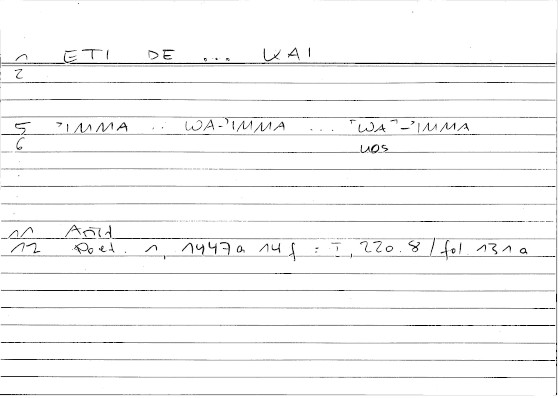 1 ETI DE ... KAI
2
5 ʾIMMA .. WA-ʾIMMA ... "WA"-ʾIMMA
6 uos
11 Arist
12 Poet. 1, 1447a 14 f = I, 220.8 / fol 131 a